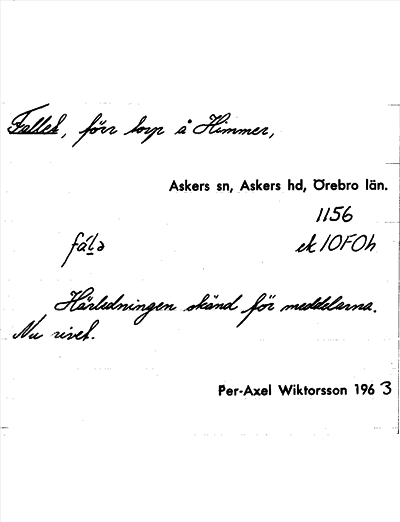 Fallet, förr torp å Himmer,
Askers sn, Askers hd, Örebro län.
1156
fáḻə ek 10F0h
Härledningen okänd för meddelarna.
Nu rivet.
Per-Axel Wiktorsson 1963